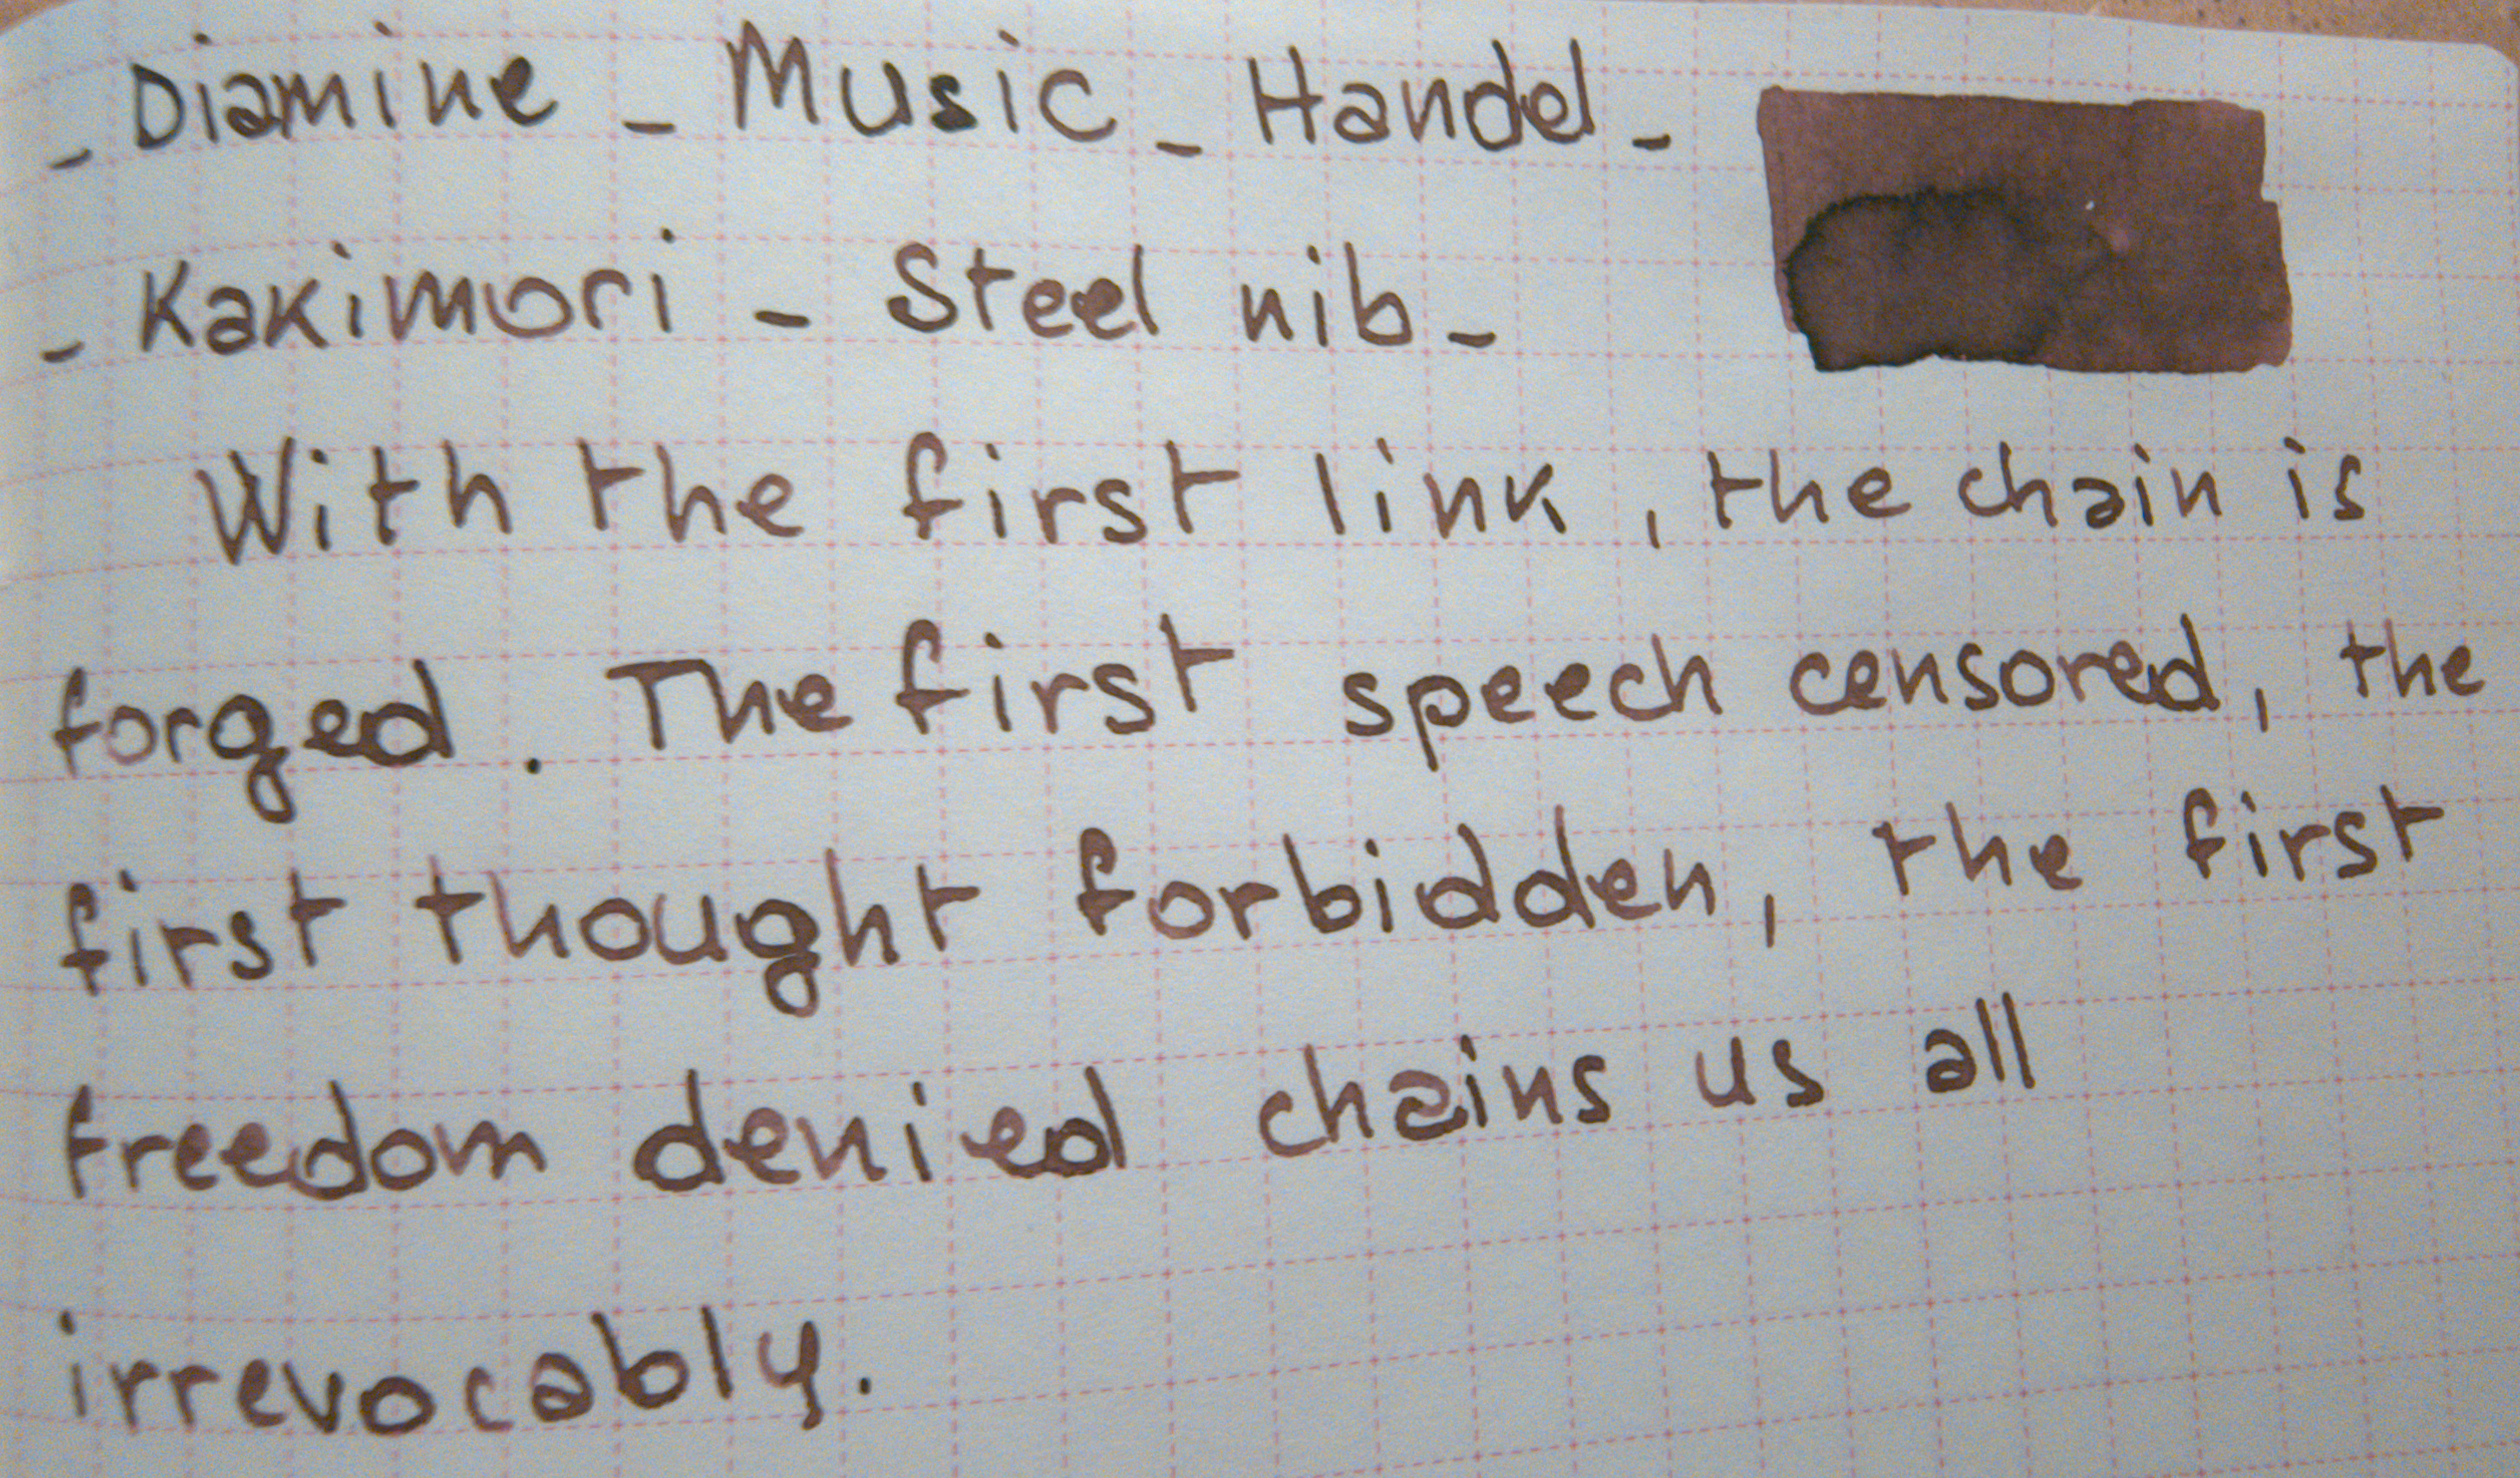 - Diamine - Music - Handel -
- Kakimori - Steel nib -
With the first link, the chain is
forged. The first speech censored, the
first thought forbidden, the first
freedom denied chains us all
irrevocably.